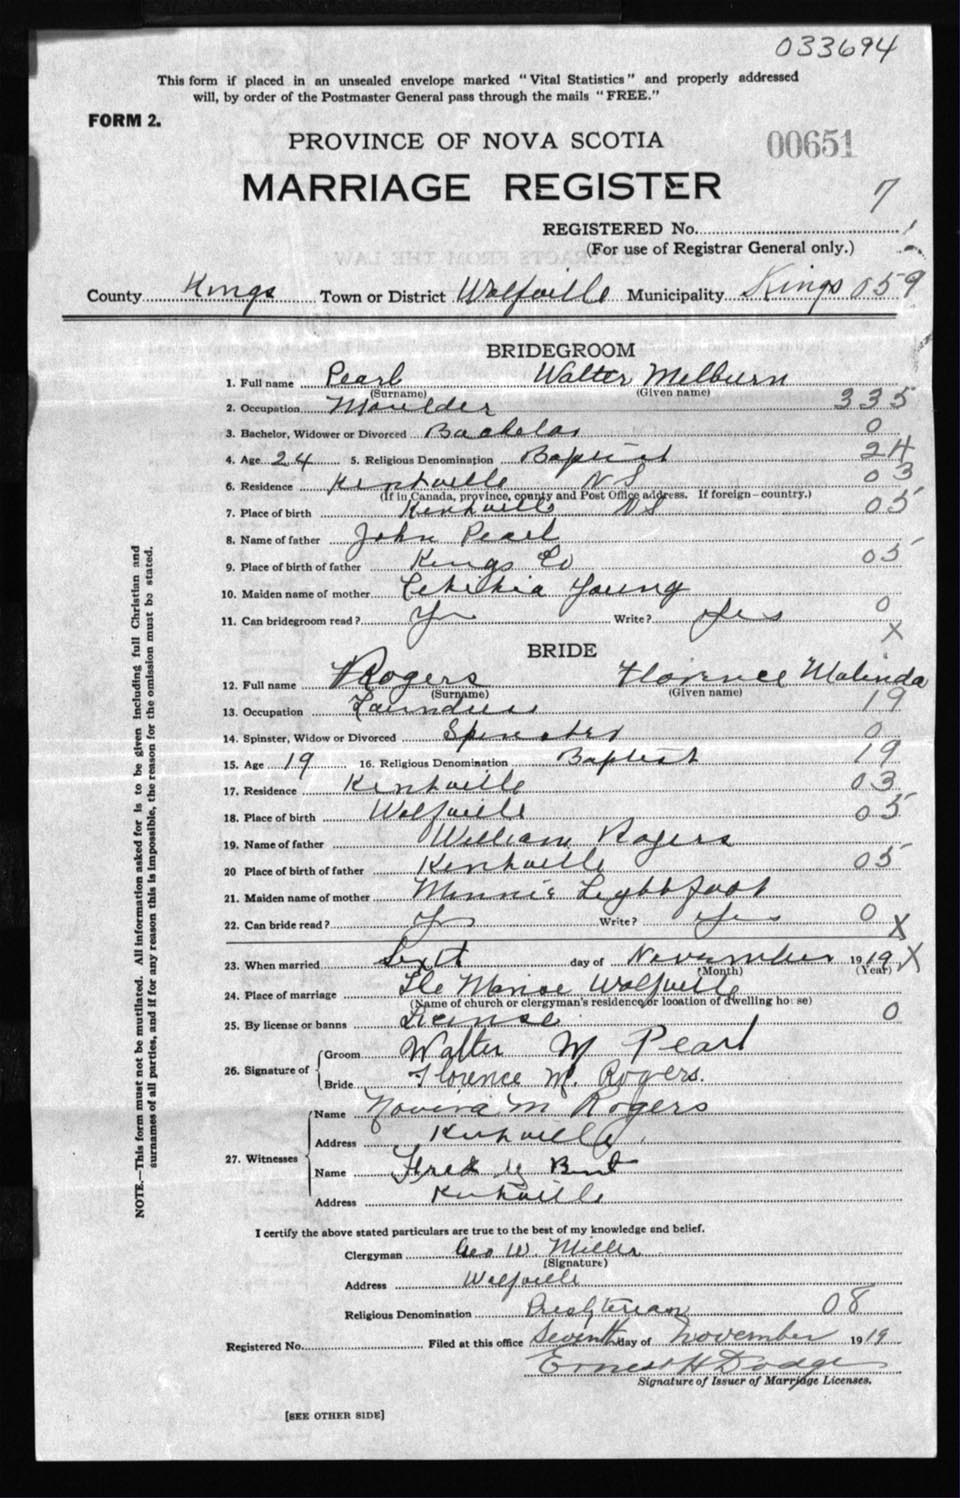 033694
This form if placed in an unsealed envelope marked "Vital Statistics" and properly addressed
will, by order of the Postmaster General pass through the mails "FREE."
FORM 2.
PROVINCE OF NOVA SCOTIA
00651
MARRIAGE REGISTER
7
REGISTERED No.
(For use of Registrar General only.)
County Kings Town or District Wolfville Municipality Kings 059
BRIDEGROOM
1. Full name Pearl Walter Melburn
(Surname) (Given name)
2. Occupation Moulder 335
3. Bachelor, Widower or Divorced Bachelor 0
4. Age 24 5. Religious Denomination Baptist 24
6. Residence Kentville N S 03
(If in Canada, province, county and Post Office address. If foreign—country.)
7. Place of birth Kentville N S 05
8. Name of father John Pearl
9. Place of birth of father Kings Co 05
10. Maiden name of mother Young
11. Can bridegroom read? Yes Write? Yes 0
X
BRIDE
12. Full name Rogers Florence Malinda
(Surname) (Given name)
13. Occupation 19
14. Spinster, Widow or Divorced Spinster 0
15. Age 19 16. Religious Denomination Baptist 19
17. Residence Kentville 03
18. Place of birth Wolfville 05
19. Name of father William Rogers
20 Place of birth of father Kentville 05
21. Maiden name of mother Minnie Lightfoot
22. Can bride read? Yes Write? Yes 0 X
23. When married day of November 1919 X
(Month) (Year)
24. Place of marriage The Manse Wolfville
(Name of church or clergyman's residence or location of dwelling house)
25. By license or banns License 0
26. Signature of Groom Walter M Pearl
Bride Florence M. Rogers.
27. Witnesses Name M Rogers
Address Kentville
Name Fred
Address Kentville
I certify the above stated particulars are true to the best of my knowledge and belief.
Clergyman Geo W. Miller
(Signature)
Address Wolfville
Religious Denomination Presbyterian 08
Registered No. Filed at this office Seventh day of November 1919
Ernest H Dodge
Signature of Issuer of Marriage Licenses.
[SEE OTHER SIDE]
NOTE.—This form must not be mutilated. All information asked for is to be given including full Christian and
surnames of all parties, and if for any reason this is impossible, the reason for the omission must be stated.